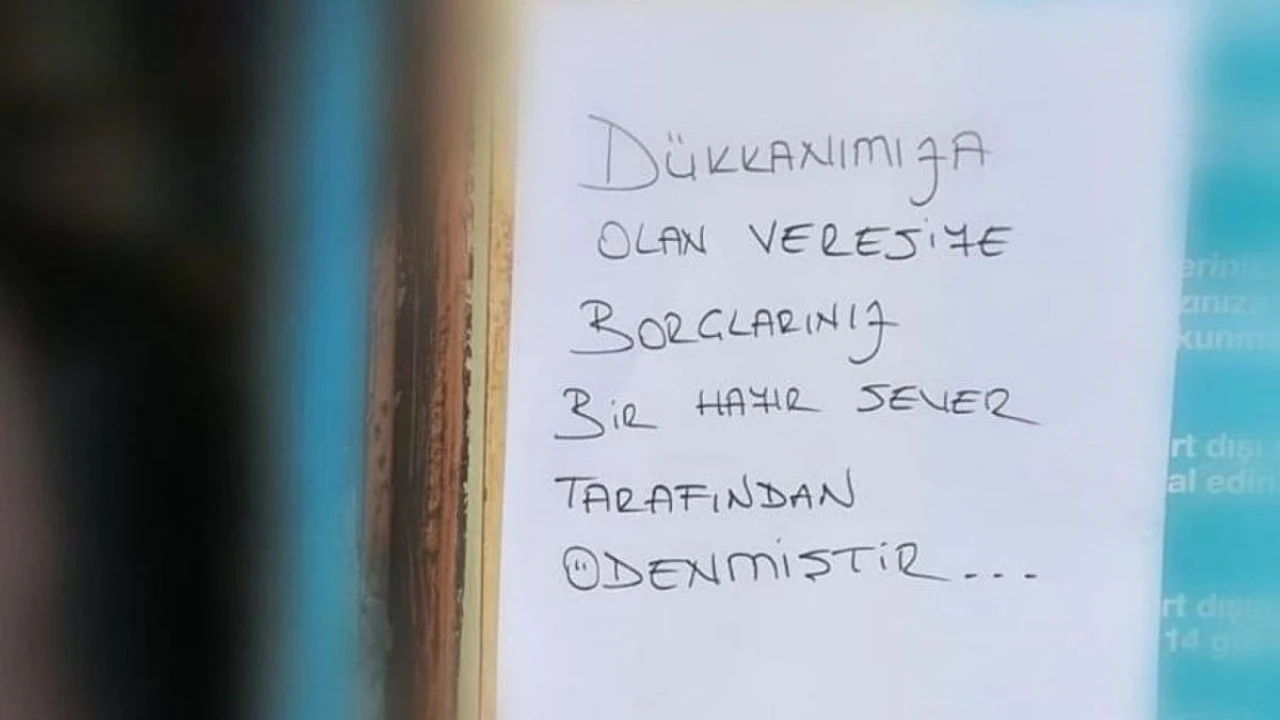 DÜKKANIMIZA
OLAN VERESİYE
BORÇLARINIZ
BİR HAYIR SEVER
TARAFINDAN
ÖDENMİŞTİR...
rt dışı
al edir
rt dışı
14 g